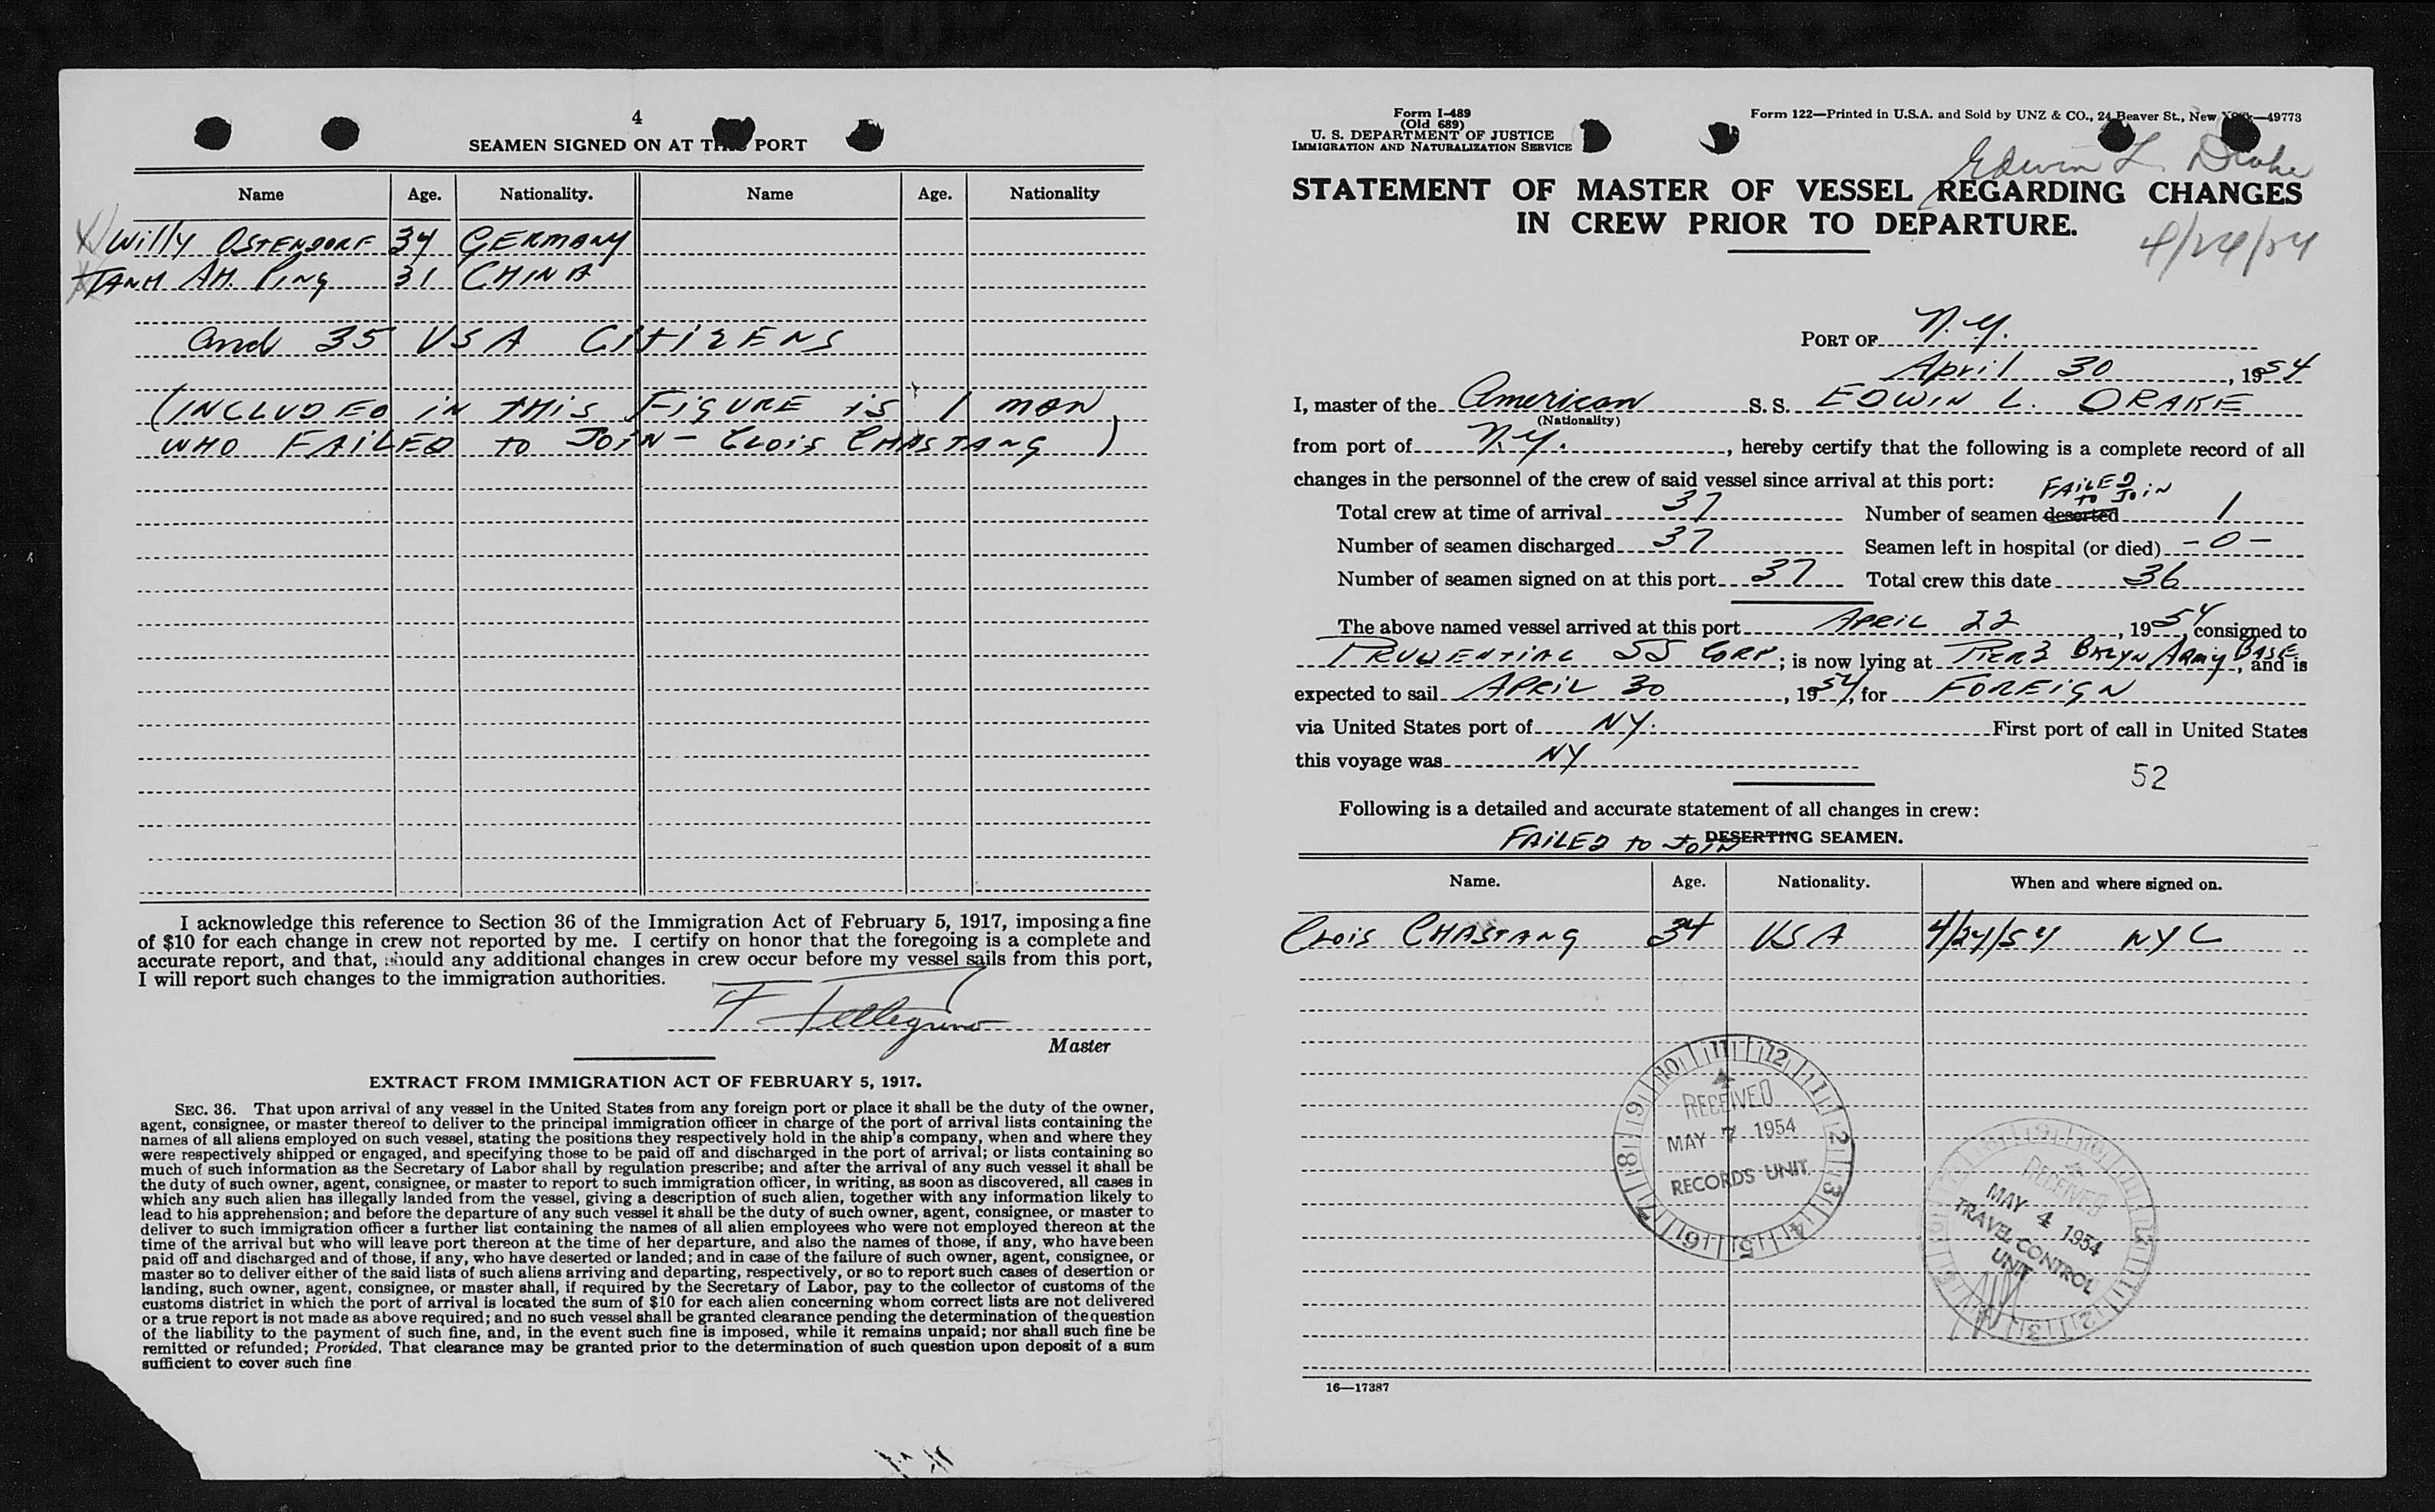 4
SEAMEN SIGNED ON AT THIS PORT
Name Age. Nationality. Name Age. Nationality
Willy OSTENDORF 34 GERMANY
TANH AH. PING 31 CHINA
and 35 USA CITIZENS
(INCLUDED IN THIS FIGURE IS 1 MAN
WHO FAILED TO JOIN - CLOIS CHASTANG)
I acknowledge this reference to Section 36 of the Immigration Act of February 5, 1917, imposing a fine
of $10 for each change in crew not reported by me. I certify on honor that the foregoing is a complete and
accurate report, and that, should any additional changes in crew occur before my vessel sails from this port,
I will report such changes to the immigration authorities.
F Pellegrino
Master
EXTRACT FROM IMMIGRATION ACT OF FEBRUARY 5, 1917.
SEC. 36. That upon arrival of any vessel in the United States from any foreign port or place it shall be the duty of the owner,
agent, consignee, or master thereof to deliver to the principal immigration officer in charge of the port of arrival lists containing the
names of all aliens employed on such vessel, stating the positions they respectively hold in the ship's company, when and where they
were respectively shipped or engaged, and specifying those to be paid off and discharged in the port of arrival; or lists containing so
much of such information as the Secretary of Labor shall by regulation prescribe; and after the arrival of any such vessel it shall be
the duty of such owner, agent, consignee, or master to report to such immigration officer, in writing, as soon as discovered, all cases in
which any such alien has illegally landed from the vessel, giving a description of such alien, together with any information likely to
lead to his apprehension; and before the departure of any such vessel it shall be the duty of such owner, agent, consignee, or master to
deliver to such immigration officer a further list containing the names of all alien employees who were not employed thereon at the
time of the arrival but who will leave port thereon at the time of her departure, and also the names of those, if any, who have been
paid off and discharged and of those, if any, who have deserted or landed; and in case of the failure of such owner, agent, consignee, or
master so to deliver either of the said lists of such aliens arriving and departing, respectively, or so to report such cases of desertion or
landing, such owner, agent, consignee, or master shall, if required by the Secretary of Labor, pay to the collector of customs of the
customs district in which the port of arrival is located the sum of $10 for each alien concerning whom correct lists are not delivered
or a true report is not made as above required; and no such vessel shall be granted clearance pending the determination of the question
of the liability to the payment of such fine, and, in the event such fine is imposed, while it remains unpaid; nor shall such fine be
remitted or refunded; Provided, That clearance may be granted prior to the determination of such question upon deposit of a sum
sufficient to cover such fine
Form I-489
(Old 689)
U. S. DEPARTMENT OF JUSTICE
IMMIGRATION AND NATURALIZATION SERVICE
Form 122—Printed in U.S.A. and Sold by UNZ & CO., 24 Beaver St., New York—49773
Edwin L. Drake
STATEMENT OF MASTER OF VESSEL REGARDING CHANGES
IN CREW PRIOR TO DEPARTURE.
4/24/54
PORT OF N.Y.
April 30, 1954
I, master of the American S. S. EDWIN L. DRAKE
(Nationality)
from port of N.Y., hereby certify that the following is a complete record of all
changes in the personnel of the crew of said vessel since arrival at this port:
FAILED TO JOIN
Total crew at time of arrival 37 Number of seamen deserted 1
Number of seamen discharged 37 Seamen left in hospital (or died) -0-
Number of seamen signed on at this port 37 Total crew this date 36
The above named vessel arrived at this port APRIL 22, 1954 consigned to
PRUDENTIAL SS CORP; is now lying at PIER 3 BKLYN ARMY BASE, and is
expected to sail APRIL 30, 1954, for FOREIGN
via United States port of NY. First port of call in United States
this voyage was NY
52
Following is a detailed and accurate statement of all changes in crew:
FAILED TO JOIN DESERTING SEAMEN.
Name. Age. Nationality. When and where signed on.
CLOIS CHASTANG 34 USA 4/24/54 NYC
RECEIVED
MAY 7 1954
RECORDS UNIT
RECEIVED
MAY 4 1954
TRAVEL CONTROL
UNIT
16—17387